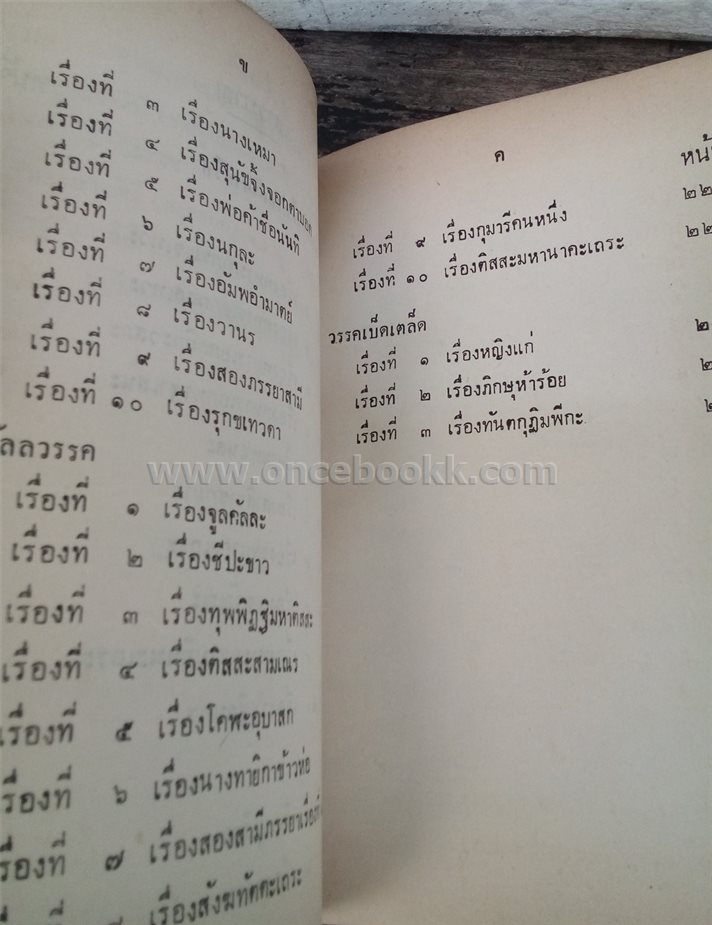 ข
เรื่องที่ ๓ เรื่องนางเหมา
เรื่องที่ ๔ เรื่องสุนัขจิ้งจอกตาบอด
เรื่องที่ ๕ เรื่องพ่อค้าชื่อนันทิ
เรื่องที่ ๖ เรื่องนกุละ
เรื่องที่ ๗ เรื่องอัมพอำมาตย์
เรื่องที่ ๘ เรื่องวานร
เรื่องที่ ๙ เรื่องสองภรรยาสามี
เรื่องที่ ๑๐ เรื่องรุกขเทวดา
ัลลวรรค
เรื่องที่ ๑ เรื่องจูลคัลละ
เรื่องที่ ๒ เรื่องชีปะขาว
เรื่องที่ ๓ เรื่องทุพพิฏฐิมหาติสสะ
เรื่องที่ ๔ เรื่องติสสะสามเณร
เรื่องที่ ๕ เรื่องโคฬะอุบาสก
เรื่องที่ ๖ เรื่องนางทายิกาข้าวห่อ
เรื่องที่ ๗ เรื่องสองสามีภรรยา
เรื่องสังฆทัตตะเถระ
ค
หน้
เรื่องที่ ๙ เรื่องกุมารีคนหนึ่ง ๒๒
เรื่องที่ ๑๐ เรื่องติสสะมหานาคะเถระ ๒๒
วรรคเบ็ดเตล็ด
เรื่องที่ ๑ เรื่องหญิงแก่ ๒
เรื่องที่ ๒ เรื่องภิกษุห้าร้อย ๒
เรื่องที่ ๓ เรื่องทันตกุฏิมพีกะ ๒
www.oncebookk.com